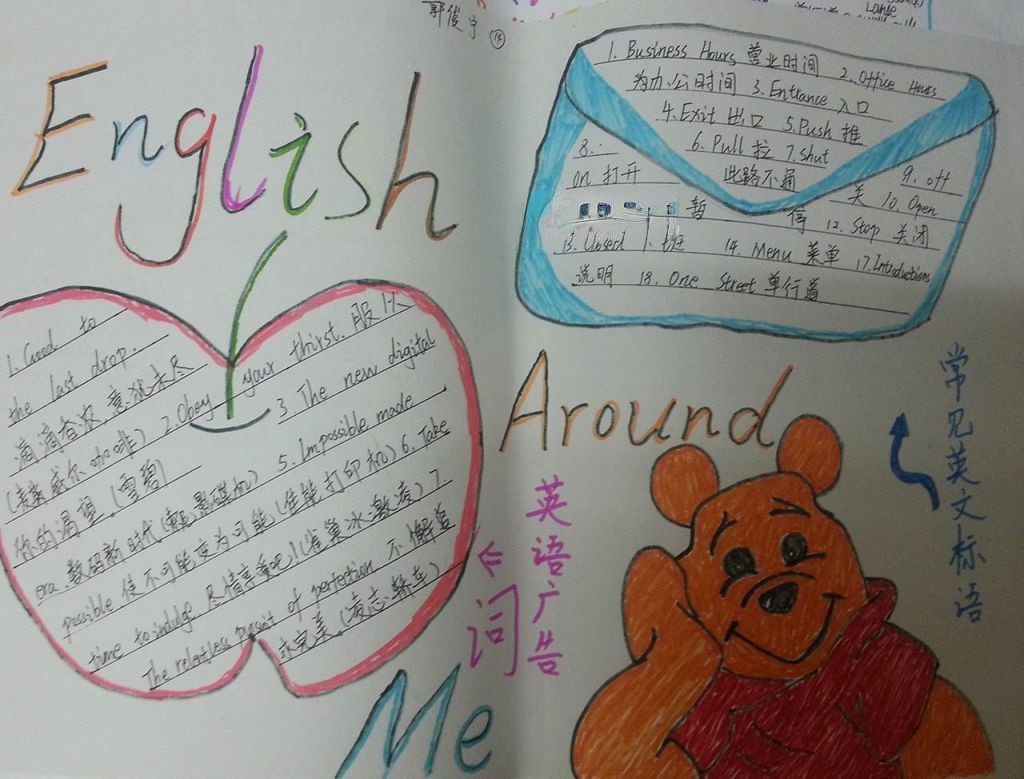 郭俊宇 ⑭
English
1. Business Hours 营业时间 2. Office Hours
为办公时间 3. Entrance 入口
4. Exit 出口 5. Push 推
6. Pull 拉 7. Shut
此路不通
8.
on 打开
9. off
关 10. Open
暂停 12. Stop 关闭
13. Closed 下班 14. Menu 菜单 17. Introductions
说明 18. One Street 单行道
1. Good to
the last drop.
滴滴香浓,意犹未尽
(麦斯威尔咖啡) 2. Obey your thirst. 服从
你的渴望 (雪碧) 3. The new digital
era. 数码新时代 5. Impossible made
possible 使不可能变为可能 (佳能打印机) 6. Take
time to indulge 尽情享受吧!(雀巢冰激凌) 7.
The relentless pursuit of perfection 不懈追
求完美 (凌志轿车)
Around
Me
英语广告词
常见英文标语